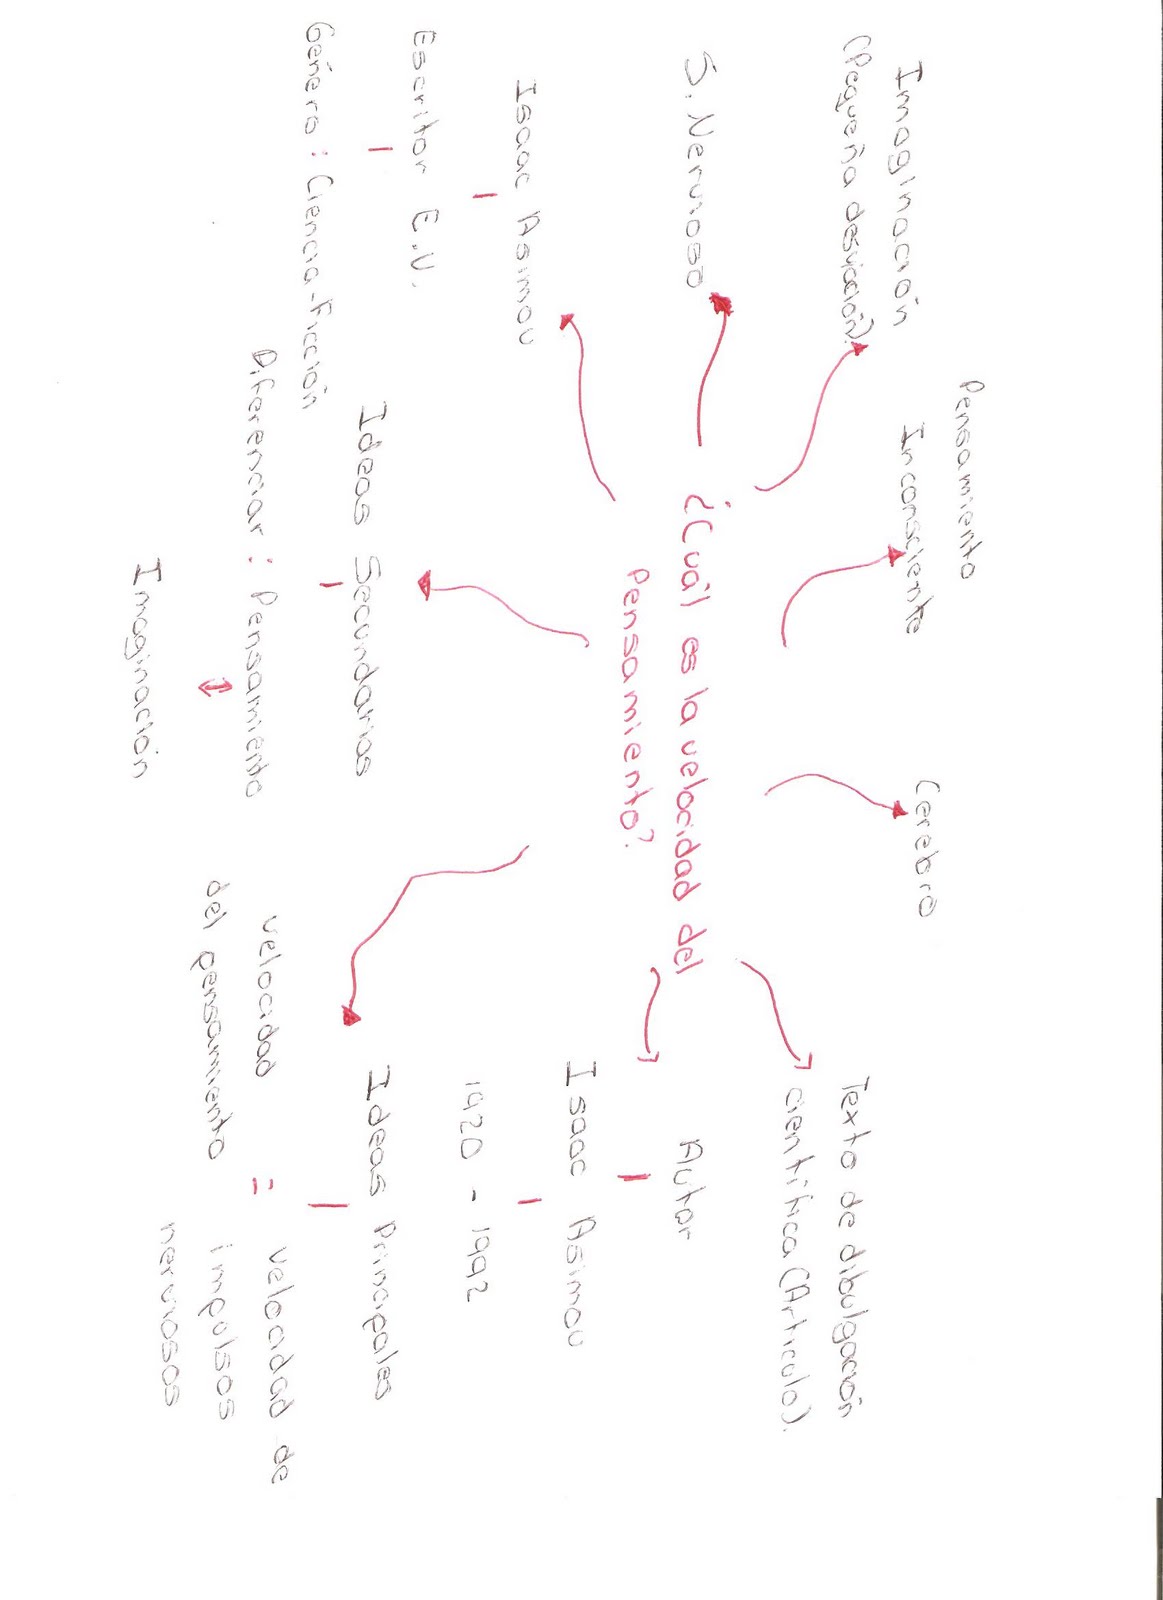 Imaginación
(Pequeña desviación).
Pensamiento
Inconsciente
Cerebro
Texto de dibulgación
cientifica (Articulo).
S. Nervioso
¿Cuál es la velocidad del
Pensamiento?
Autor
Isaac Asimov
1920 - 1992
Isaac Asimov
Escritor E.U.
Género: Ciencia-Ficción
Ideas Secundarias
Diferenciar: Pensamiento
Imaginación
Ideas Principales
Velocidad
del pensamiento
=
Velocidad de
impulsos
nerviosos